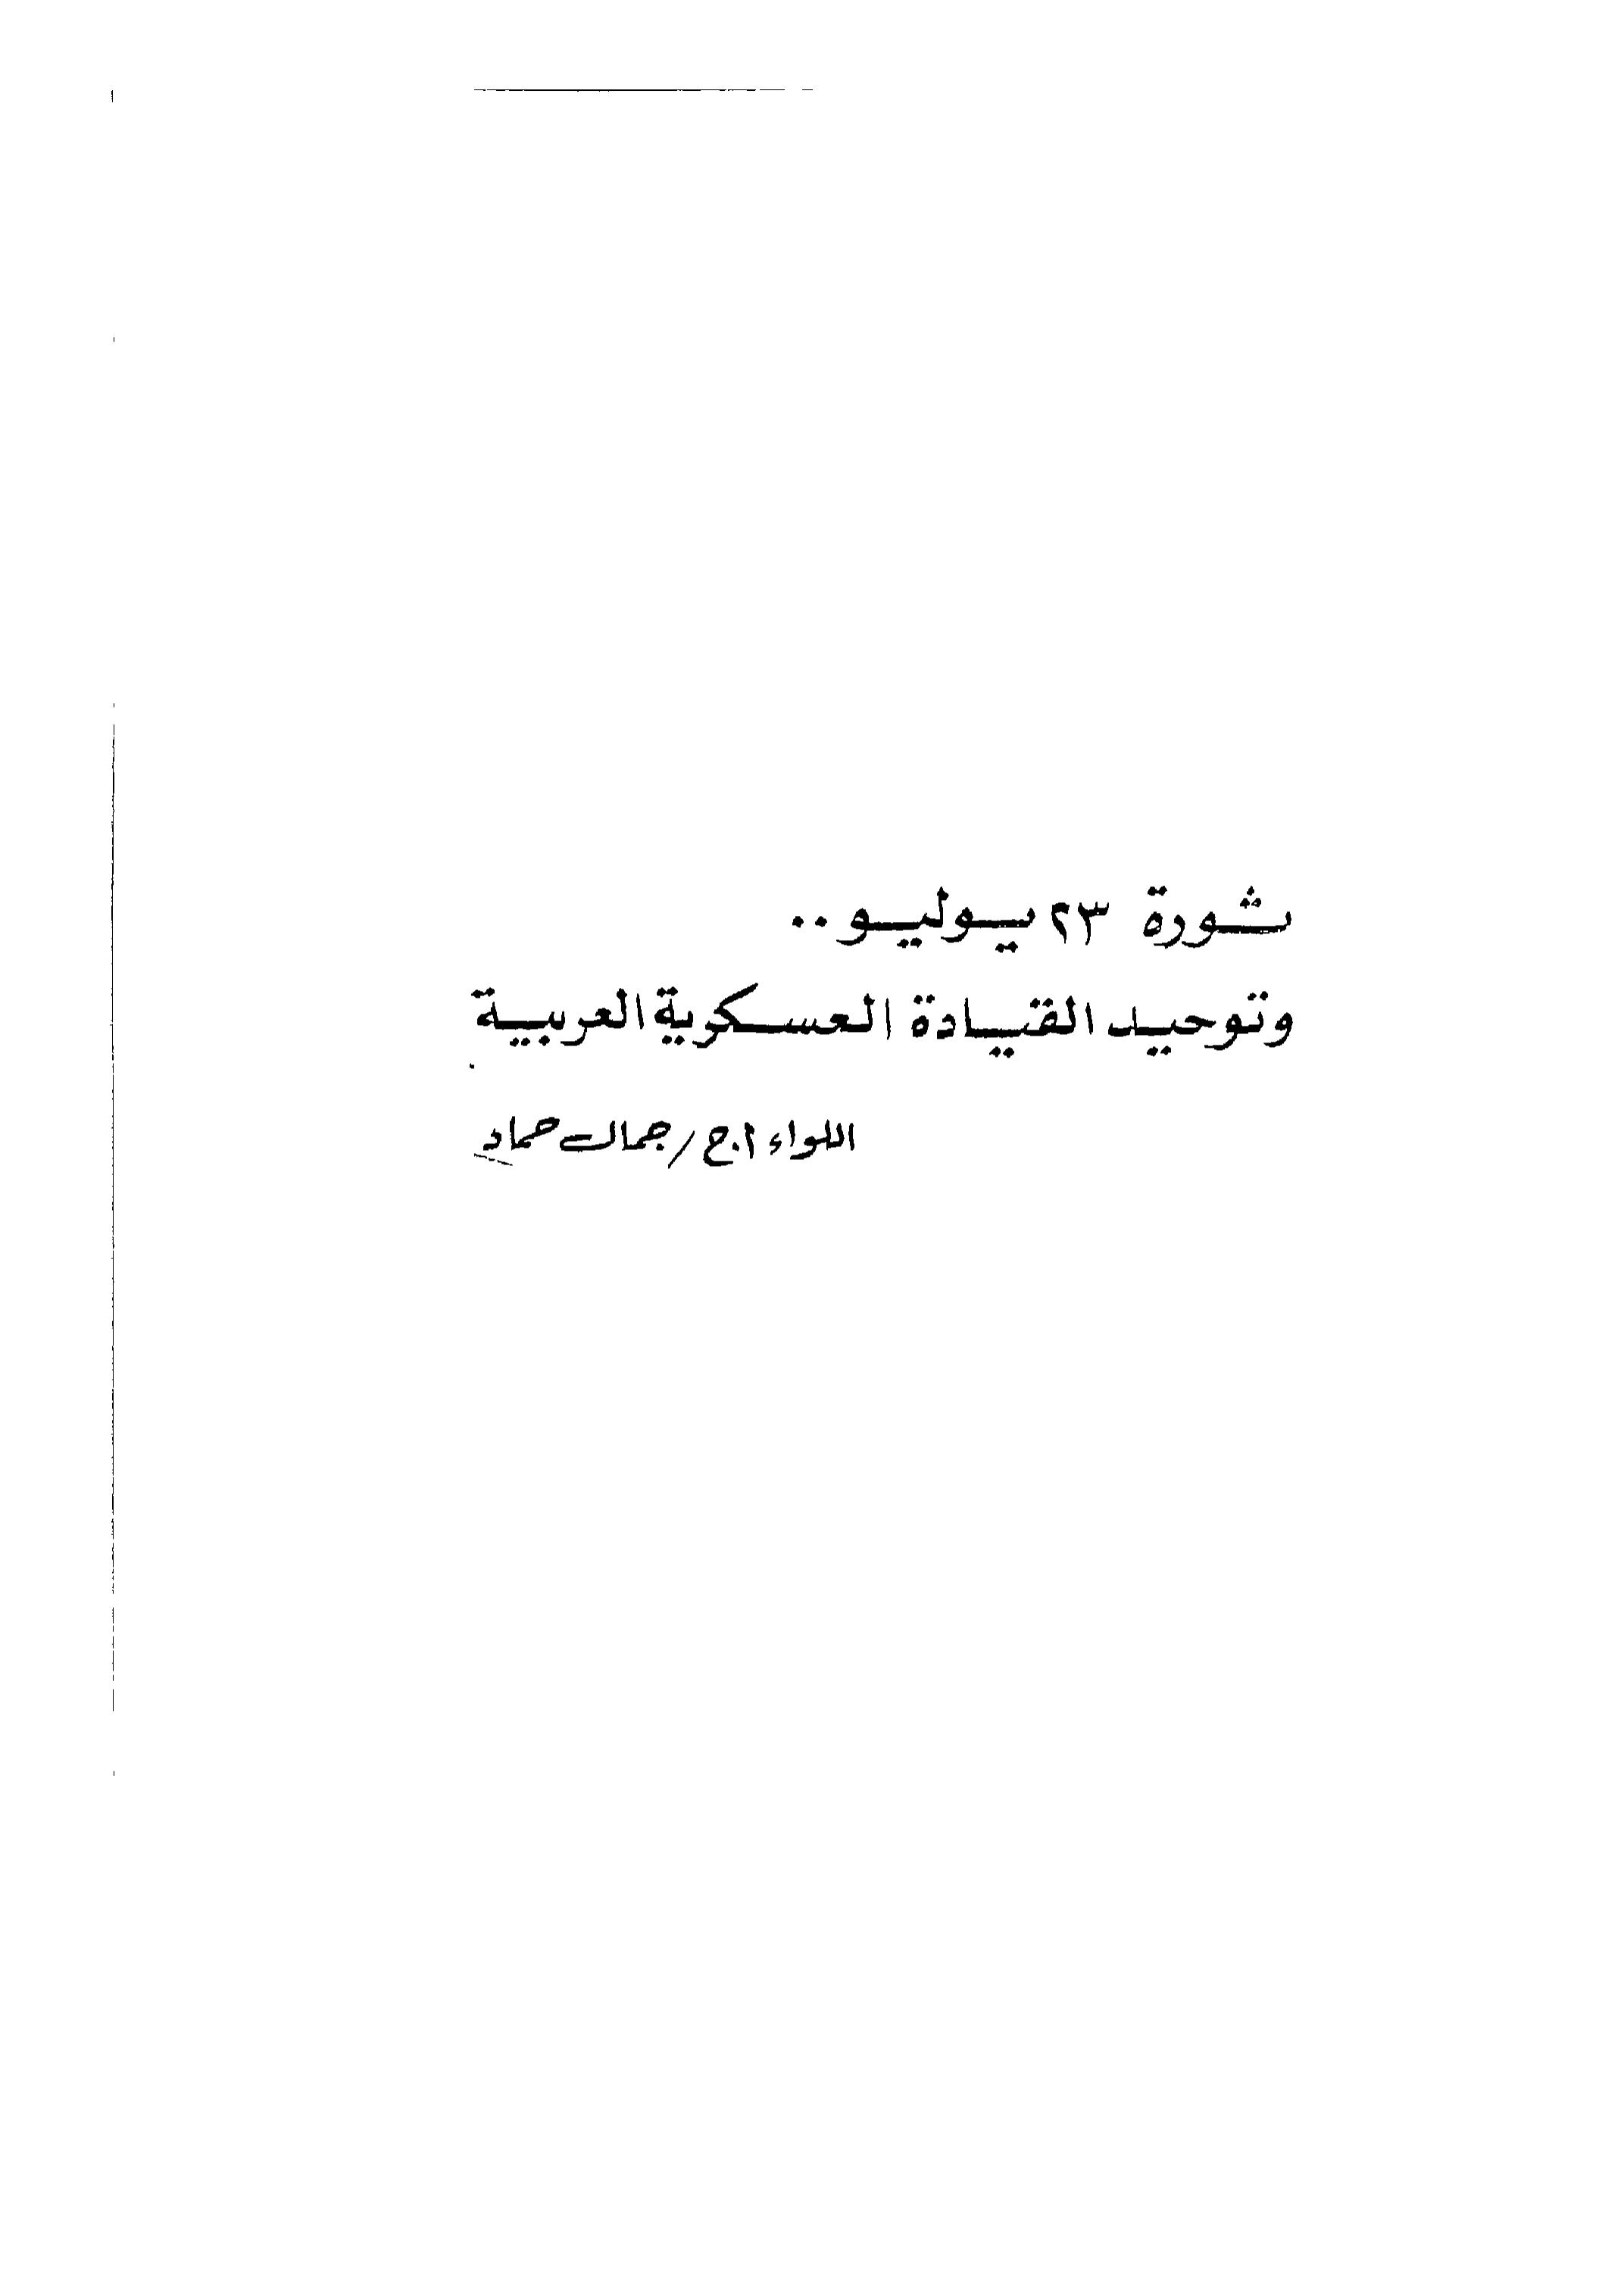 ثورة ٢٣ يوليو..
وتوحيد القيادة العسكرية العربية
اللواء ا.ح/جمال حماد